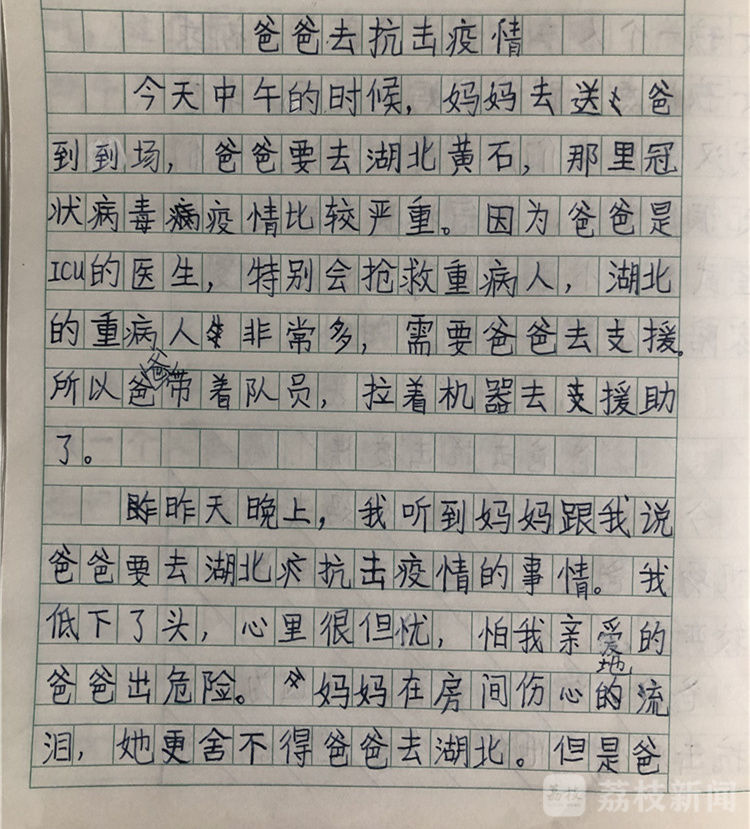 爸爸去抗击疫情
今天中午的时候，妈妈去送爸
到到场，爸爸要去湖北黄石，那里冠
状病毒病疫情比较严重。因为爸爸是
ICU的医生，特别会抢救重病人，湖北
的重病人非常多，需要爸爸去支援。
所以爸爸带着队员，拉着机器去支援助
了。
昨昨天晚上，我听到妈妈跟我说
爸爸要去湖北抗击疫情的事情。我
低下了头，心里很但忧，怕我亲爱的
爸爸出危险。妈妈在房间伤心地流
泪，她更舍不得爸爸去湖北。但是爸
荔枝新闻